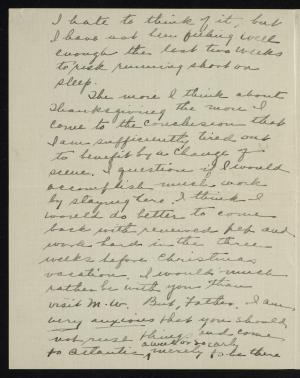 I hate to think of it, but
I have not been feeling well
enough the last two weeks
to risk running short on
sleep.
The more I think about
Thanksgiving the more I
come to the conclusion that
I am sufficiently tired out
to benefit by a change of
scene. I question if I would
accomplish much work
by staying here. I think I
would do better to come
back with renewed pep and
work hard in the three
weeks before Christmas
vacation. I would much
rather be with you than
visit M.W. But, Father, I am
very anxious that you should
not rush things and come
a week or so early
to Atlantic, merely to be there